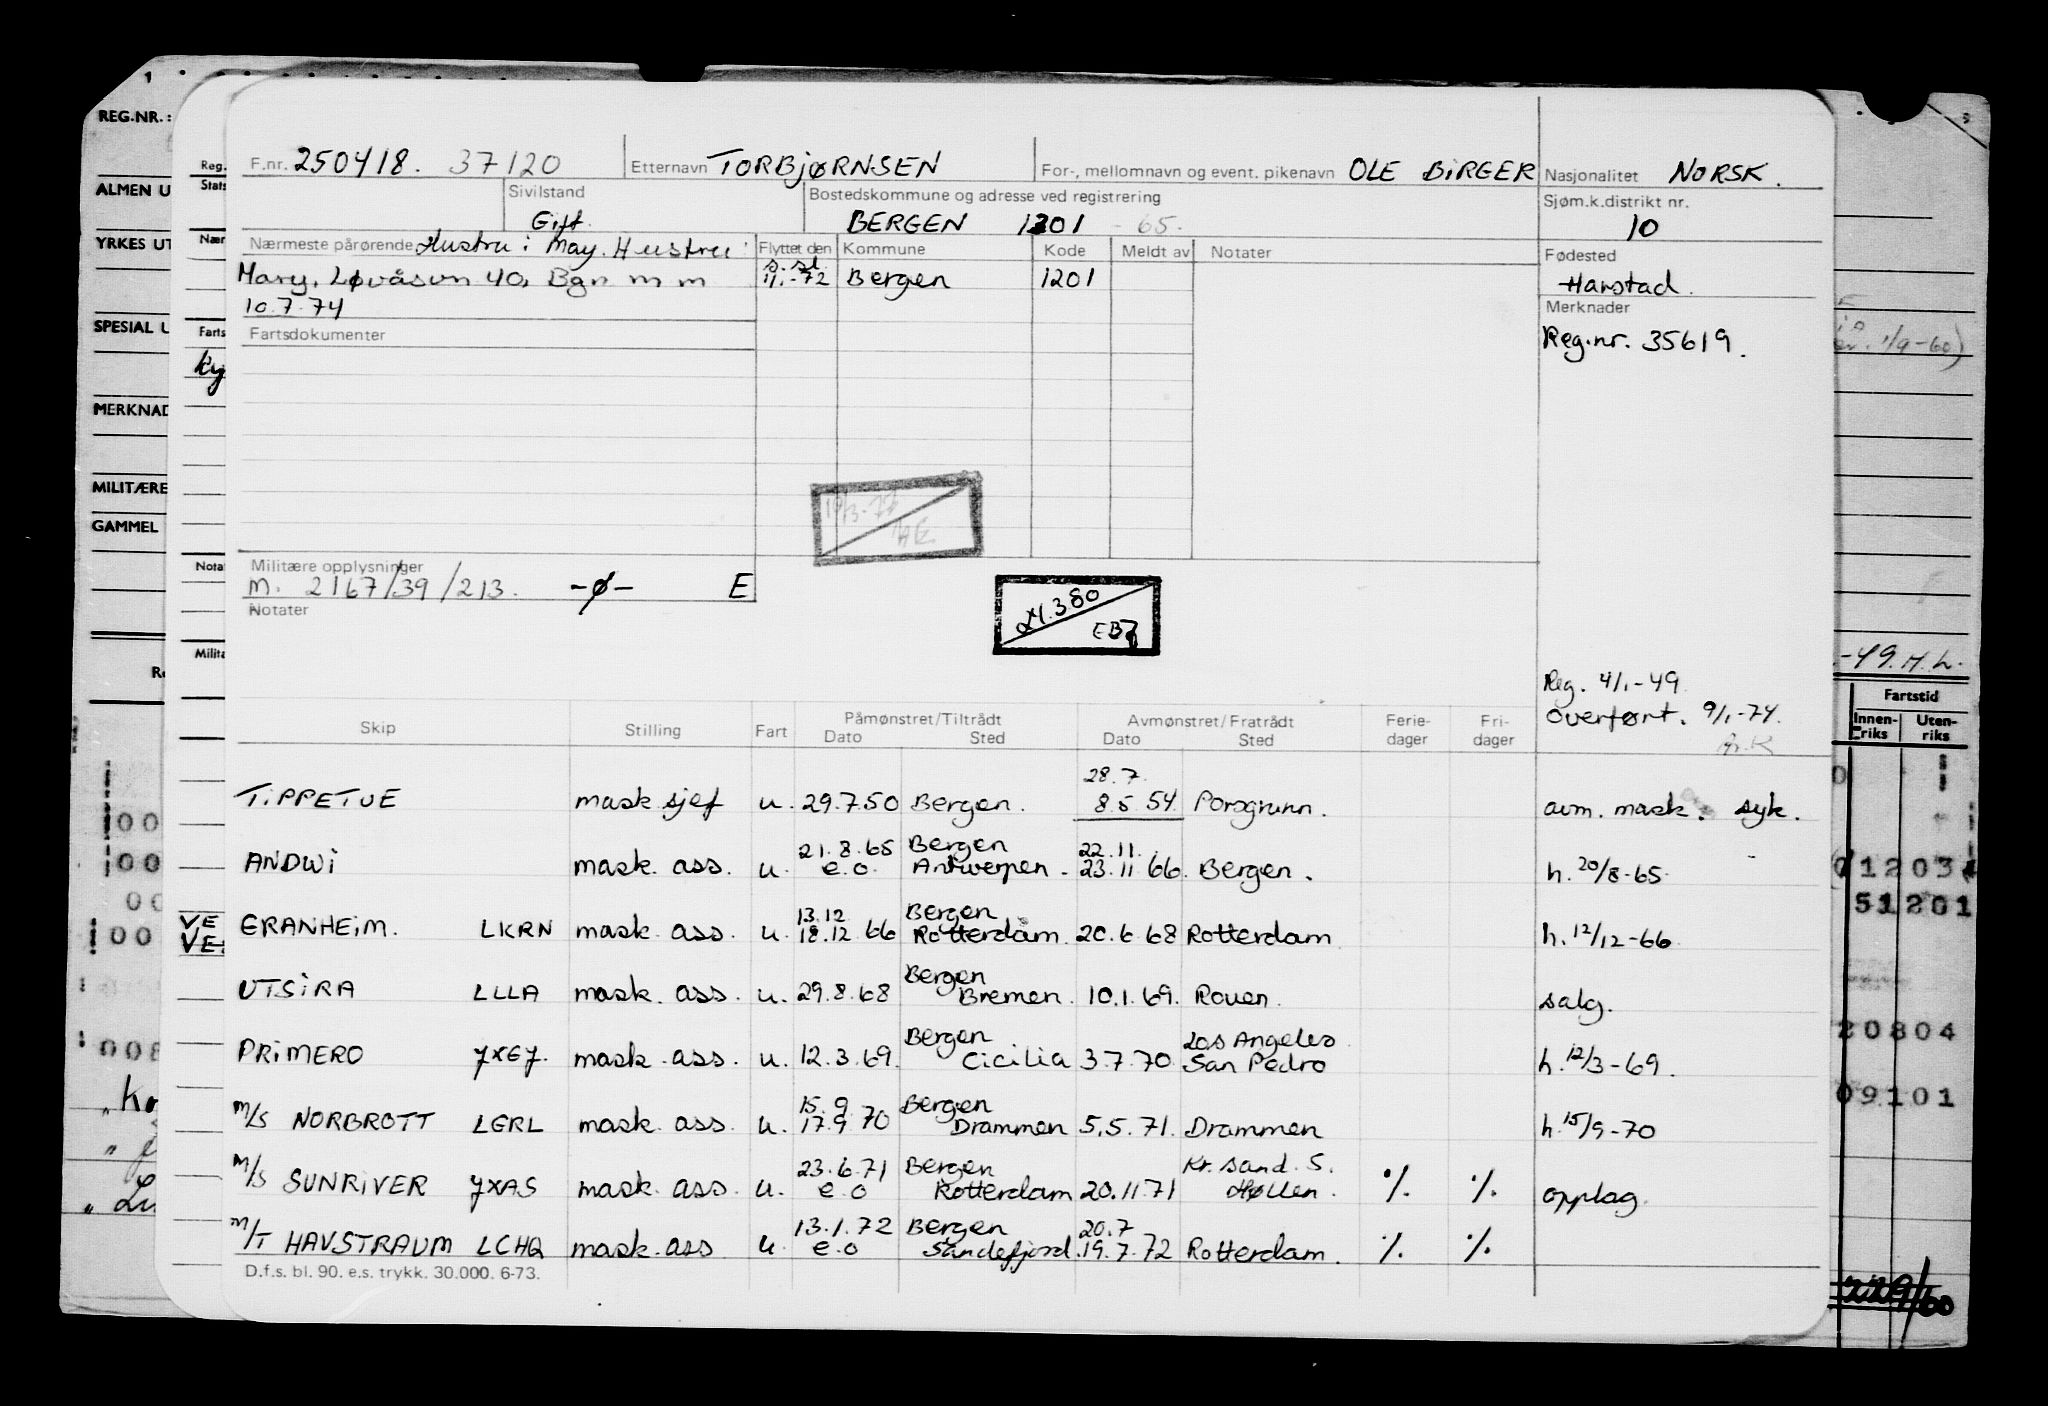 REG.NR.:
ALMEN U
YRKES UT
SPESIAL U
MERKNAD
MILITÆRE
GAMMEL
Reg.
Stats
Nær
Farts
Ky
Nota
Milita
F.nr. 250418. 37120 Etternavn TORBJØRNSEN For-, mellomnavn og event. pikenavn OLE BIRGER Nasjonalitet NORSK.
Sivilstand Gift. Bostedskommune og adresse ved registrering BERGEN 1201 - 65. Sjøm.k.distrikt nr. 10
Nærmeste pårørende Hustru: May. Hustru: Flyttet den Kommune Kode Meldt av Notater Fødested
Mary, Løvåsvn 40, Bgn m m s.st. 11.-72 Bergen 1201 Harstad.
10.7.74 Merknader
Fartsdokumenter Reg.nr. 35619.
Militære opplysninger
M. 2167/39/213. -ø- E
Notater
24.3 80
EBJ
Reg. 4/1.-49
Overført. 9/1-74.
Skip Stilling Fart Påmønstret/Tiltrådt Dato Sted Avmønstret/Fratrådt Dato Sted Ferie-dager Fri-dager
28.7.
TIPPETUE mask.sjef u. 29.7.50 Bergen. 8.5.54. Porsgrunn. avm. mask. syk.
21.8.65 Bergen 22.11.
ANDWI mask. ass. u. e.o. Antwerpen - 23.11.66. Bergen. h. 20/8-65.
13.12 Bergen
GRANHEIM. LKRN mask. ass. u. 18.12.66 Rotterdam. 20.6.68 Rotterdam h. 12/12-66.
Bergen
UTSIRA LLLA mask. ass. u. 29.8.68 Bremen. 10.1.69. Rouen. salg.
Bergen Los Angeles
PRIMERO JXGJ. mask. ass. u. 12.3.69. Cicilia 3.7.70. San Pedro h. 12/3-69.
15.9. Bergen
M/S NORBROTT LGRL mask. ass. u. 17.9.70 Drammen 5.5.71. Drammen h. 15/9-70
23.6.71 Bergen Kr. sand. S.
M/S SUNRIVER JXAS mask. ass. u. e.o Rotterdam 20.11.71 Høllen. % % opplag.
13.1.72 Bergen 20.7
M/T HAVSTRAUM LCHQ mask. ass u. e.o Sandefjord. 19.7.72 Rotterdam. % %
D.f.s. bl. 90. e.s. trykk. 30.000. 6-73.
1/9-60)
-49. H. L.
Fartstid
Innen-riks Uten-riks
51201
20804
09101